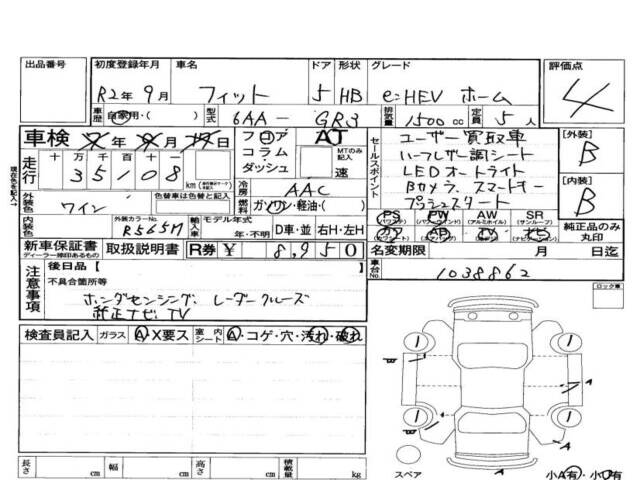 出品番号 初度登録年月 車名 ドア 形状 グレード 評価点
R2年9月 フィット 5 HB e:HEV ホーム 4
車歴 自家用・( ) 型式 6AA-GR3 排気量 1500 cc 定員 5人
車検 年 月 日 フロア コラム ダッシュ AT MTのみ記入 速
走行 十 万 千 百 十 一
35108 km
冷房 AAC
燃料 ガソリン・軽油・( )
セールスポイント
ユーザー買取車
ハーフレザー調シート
LEDオートライト
Bカメラ、スマートキー
プッシュスタート
[外装] B
[内装] B
外装色 ワイン
色替車は色替前
内装色
外装カラーNo. R565M
輸入車 モデル年式 年・不明 D車・並 右H・左H
PS PW AW SR
(パワステ) (パワーウィンドウ) (アルミホイル) (サンルーフ)
純正品のみ丸印
新車保証書 取扱説明書 R券 ¥8,950
ディーラー捺印あるもの
名変期限 月 日迄
車台No. 1038862
注意事項
後日品 [ ]
不具合箇所等
ホンダセンシング、レーダークルーズ
純正ナビ、TV
ロック車
検査員記入 ガラス A・X要ス 室内シート A・コゲ・穴・汚れ・破れ
A
A
A
スペア
長さ cm 幅 cm 高さ cm 積載量 kg
小A有・小U有